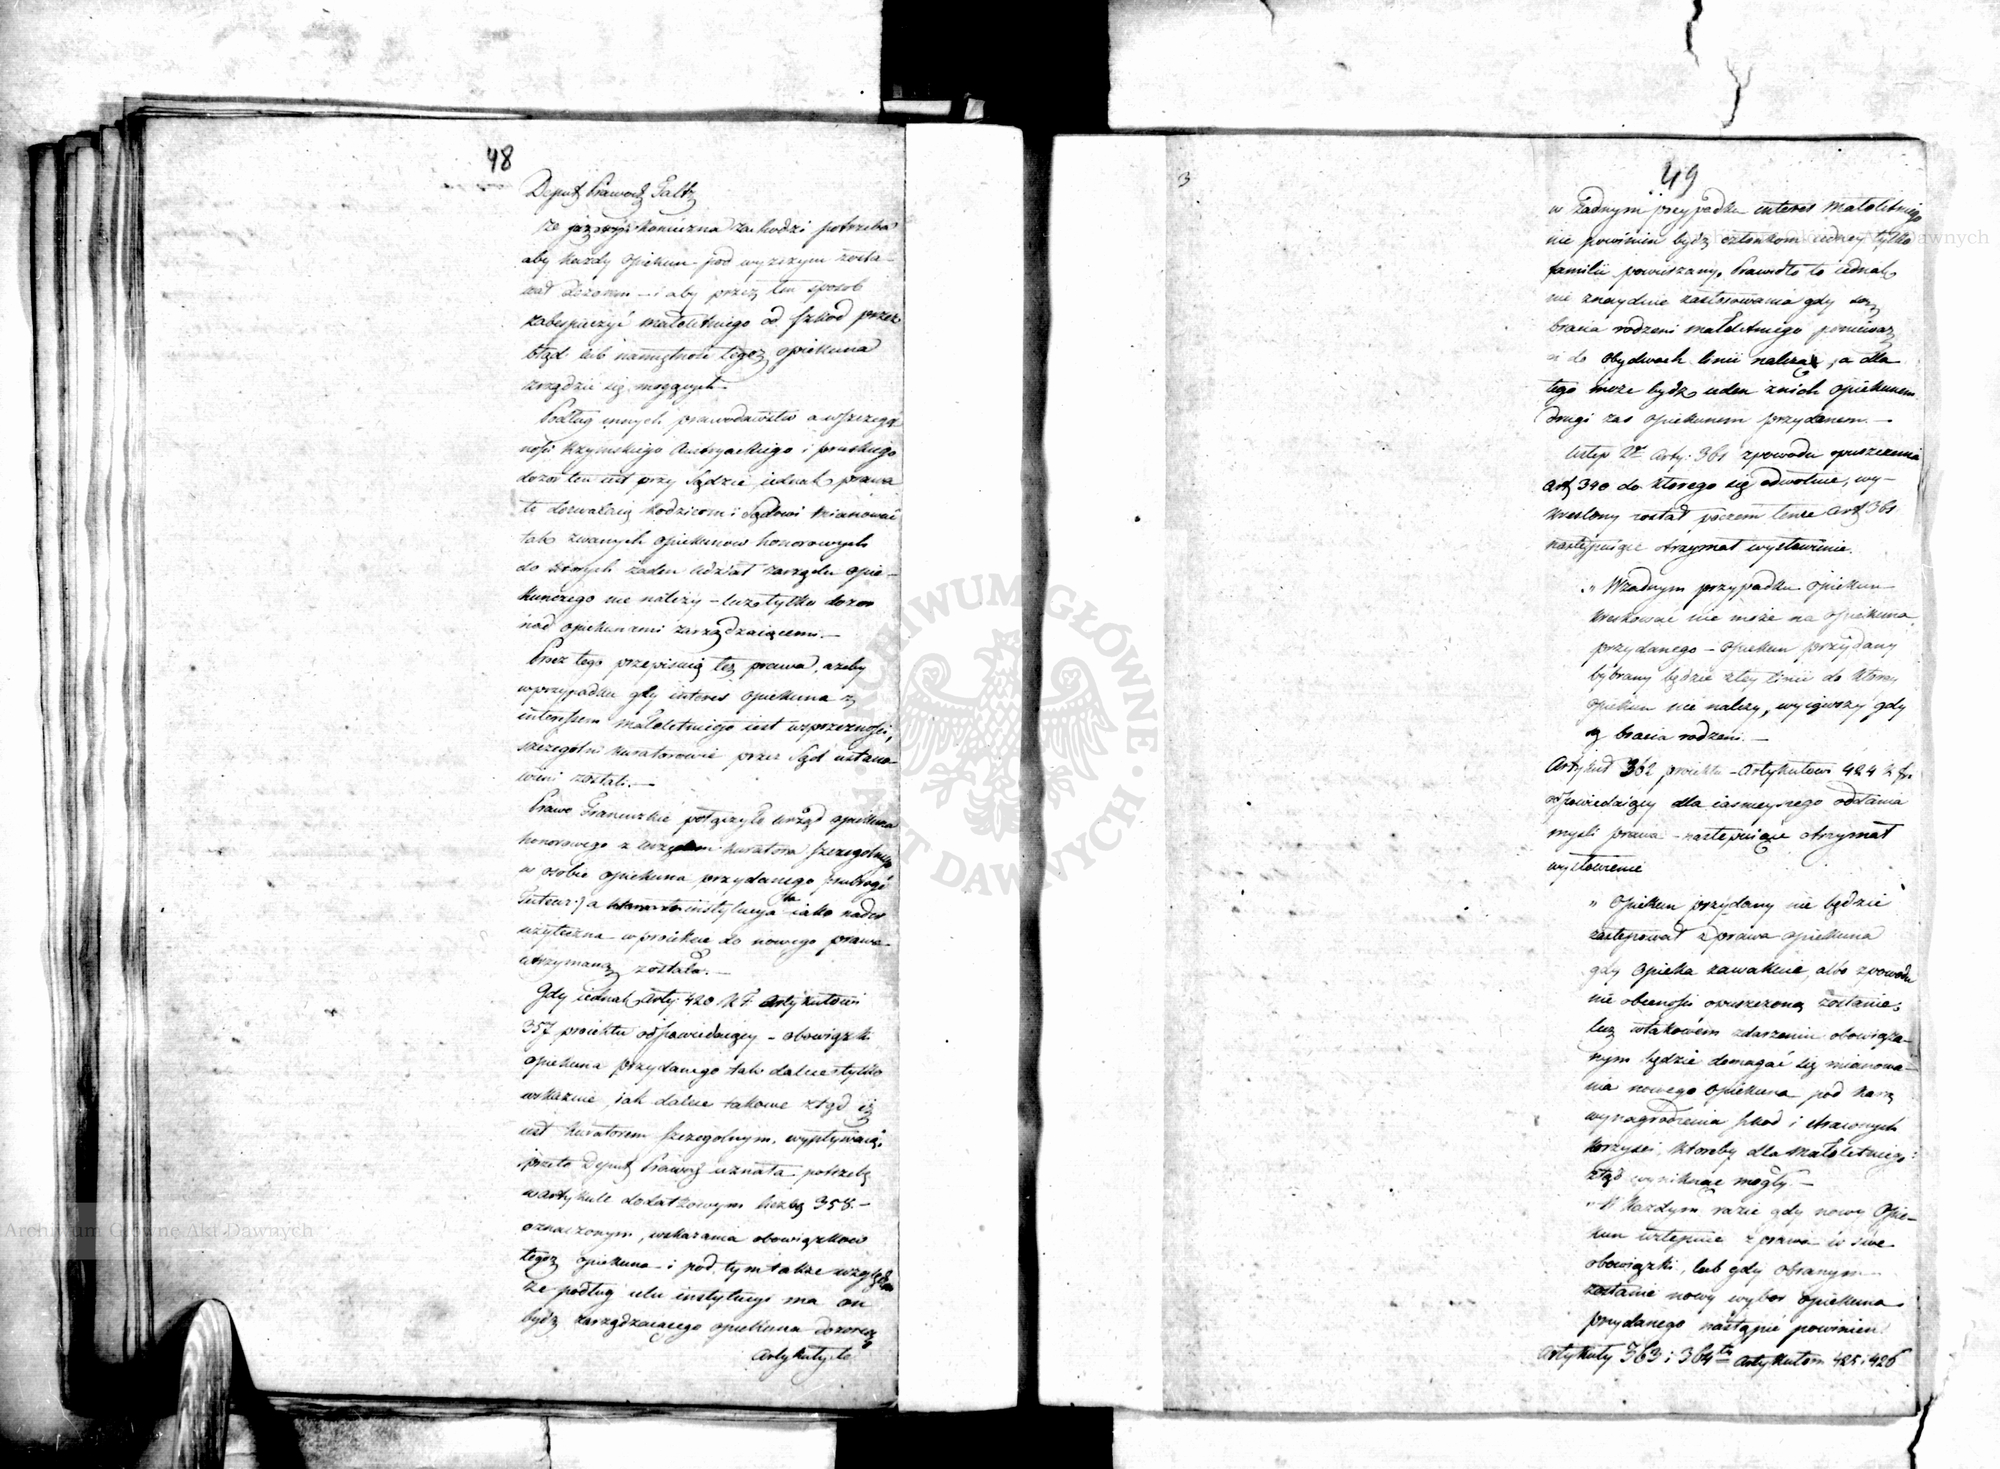 48
Deput. Prawod.
że jak konieczna zachodzi potrzeba
aby każdy opiekun pod wyższym zosta-
wał dozorem – i aby przez ten sposób
zabespieczyć małoletniego od szkod przez
błąd lub namiętność tegoż opiekuna
zrządzić się mogących.
Podług innych prawodawstw a wszczegul
ności Rzymskiego Austryackiego i pruskiego
dozór ten iest przy Sądzie, iednak prawa
te dozwalaią Rodzicom i Sądowi mianować
tak zwanych opiekunow honorowych
do których żaden udział zarządu opie-
kunczego nie należy – lecz tylko dozor
nad opiekunami zarządzaiącemi. –
Prócz tego przepisuią też prawa, ażeby
w przypadku gdy interes opiekuna z
interesem małoletniego iest w sprzeczności,
szczególni kuratorowie przez Sąd ustano-
wieni zostali. –
Prawo Francuzkie połączyło urząd opiekuna
honorowego z urzędem kuratora szczególnego
w osobie opiekuna przydanego (subrogé
Tuteur) a instytucya ta iako nader
użyteczna w proiekcie do nowego prawa
utrzymaną została. –
Gdy iednak Arty: 420 K. F. Artykułowi
357 proiektu odpowiedaiący – obowiązki
opiekuna przydanego tak dalece tylko
wskazuie, iak dalece takowe ztąd iż
iest kuratorem szczególnym, wypływaią,
przeto Deput. Prawod. uznała potrzebę
w artykule dodatkowym liczbą 358. –
oznaczonym, wskazania obowiązków
tegoż opiekuna i pod tym także względem
że podług celu instytucyi ma on
bydź zarządzaiącego opiekuna dozorcą
Artykuły te
3
49
w żadnym przypadku interes Małoletniego
nie powinien bydź członkom iedney tylko
familii powierzany. Prawidło to iednak
nie znayduie zastosowania gdy są
bracia rodzeni małoletniego ponieważ
ci do obydwoch linii należą, a dla
tego może bydź ieden z nich opiekunem
drugi zas opiekunem przydanem. –
Ustęp 2. Arty: 361 z powodu opuszczenia
Art. 340 do ktorego się odwołuie, wy-
kreślony został poczem tenże Art. 361
następuiące otrzymał wysłowienie.
„ W żadnym przypadku opiekun
kreskować nie może na opiekuna
przydanego – opiekun przydany
wybrany będzie z tey linii do ktorey
opiekun nie należy, wyiąwszy gdy
są bracia rodzeni. –
Artykuł 362 proiektu – Artykułowi 424 K. Fr.
odpowiedaiący dla iasnieyszego oddania
myśli prawa – następuiące otrzymał
wysłowienie
„ Opiekun przydany nie będzie
zastępował z prawa opiekuna
gdy opieka zawakuie, albo z powodu
nie obecności opuszczoną zostanie,
lecz w takowém zdarzeniu obowiąza-
nym będzie domagać się mianowa-
nia nowego opiekuna pod karą
wynagrodzenia szkod i straconych
korzyści, ktoreby dla Małoletniego
ztąd wyniknąć mogły. –
„ W każdym razie gdy nowy Opie-
kun wstępuie z prawa w swe
obowiązki, lub gdy obranym
zostanie nowy wybor opiekuna
przydanego nastąpić powinien.
Artykuły 363 i 364 te Artykułom 425 i 426
ARCHIWUM GŁÓWNE AKT DAWNYCH
Archiwum Główne Akt Dawnych
Archiwum Główne Akt Dawnych